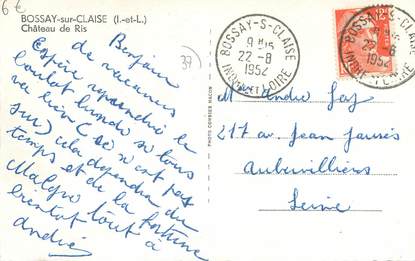 6 €
BOSSAY-sur-CLAISE (I.-et-L.)
Château de Ris
37
Bonjour
de vacances
Espère reprendre le
boulot lundi si tous
va bien (ce n'est pas
sur) cela dépendra du
temps et de la fortune
Malgré tout à
bientot
André
PHOTO COMBIER MACON
BOSSAY-S-CLAISE
22-8
1952
INDRE ET LOIRE
BOSSAY-S-CLAISE
22-8
1952
INDRE ET LOIRE
12F
Mr André
217 av. Jean Jaurés
Aubervilliers
Seine